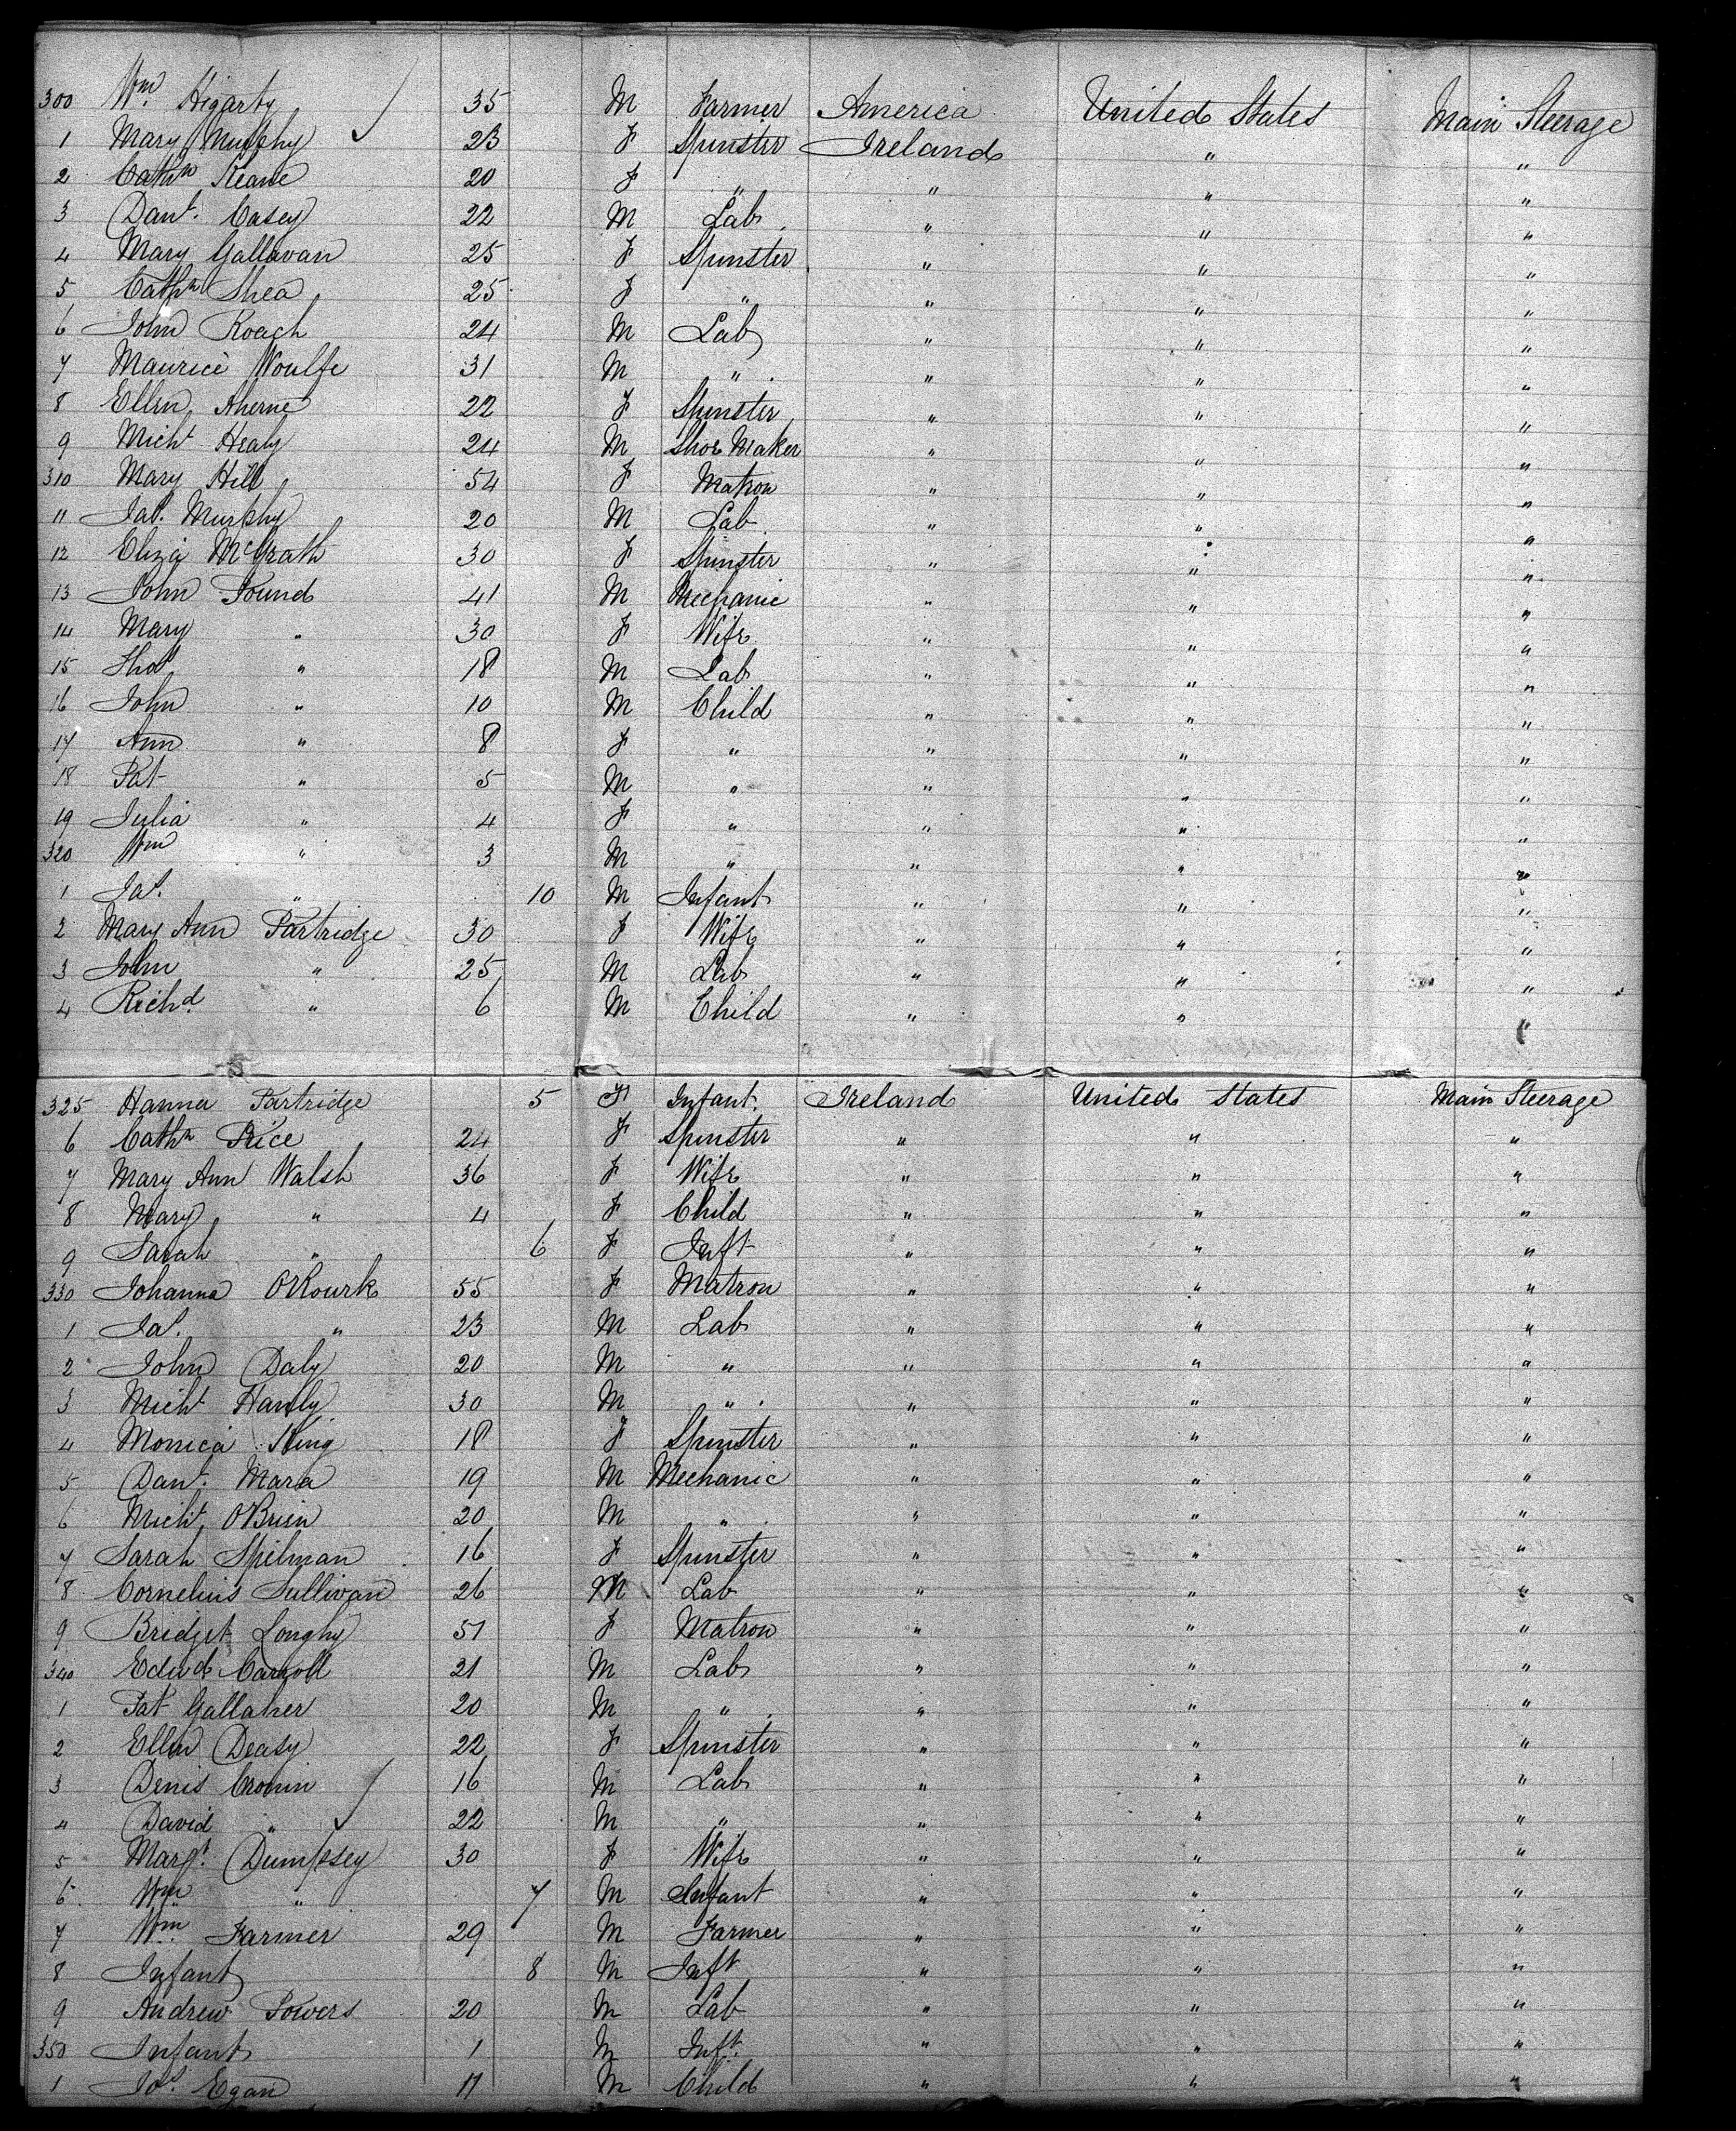 300 Wm. Higarty 35 M Farmer America United States Main Steerage
1 Mary Murphy 23 F Spinster Ireland " "
2 Cathn Keane 20 F " " " "
3 Danl. Casey 22 M Lab. " " "
4 Mary Gallavan 25 F Spinster " " "
5 Cathn Shea 25 F " " " "
6 John Roach 24 M Lab " " "
7 Maurice Woulfe 31 M " " " "
8 Ellen Aherne 22 F Spinster " " "
9 Michl Healy 24 M Shoe Maker " " "
310 Mary Hill 54 F Matron " " "
11 Jas. Murphy 20 M Lab " " "
12 Eliza McGrath 30 F Spinster " " "
13 John Found 41 M Mechanic " " "
14 Mary " 30 F Wife " " "
15 Thos " 18 M Lab " " "
16 John " 10 M Child " " "
17 Ann " 8 F " " " "
18 Pat " 5 M " " " "
19 Julia " 4 F " " " "
320 Wm " 3 M " " " "
1 Jas. " 10 M Infant " " "
2 Mary Ann Partridge 30 F Wife " " "
3 John " 25 M Lab " " "
4 Richd. " 6 M Child " " "
325 Hanna Partridge 5 F Infant. Ireland United States Main Steerage
6 Cathn Rice 24 F Spinster " " "
7 Mary Ann Walsh 36 F Wife " " "
8 Mary " 4 F Child " " "
9 Sarah " 6 F Inft " " "
330 Johanna O'Rourk 55 F Matron " " "
1 Jas. " 23 M Lab " " "
2 John Daly 20 M " " " "
3 Michl Hanly 30 M " " " "
4 Monica King 18 F Spinster " " "
5 Danl. Mara 19 M Mechanic " " "
6 Michl. O'Brien 20 M " " " "
7 Sarah Spilman 16 F Spinster " " "
8 Cornelius Sullivan 26 M Lab " " "
9 Bridget Longhy 51 F Matron " " "
340 Edwd Carroll 21 M Lab " " "
1 Pat Gallaher 20 M " " " "
2 Ellen Deasy 22 F Spinster " " "
3 Denis Cronin 16 M Lab " " "
4 David " 22 M " " " "
5 Margt. Dumpsey 30 F Wife " " "
6 Wm " 7 M Infant " " "
7 Wm. Farmer 29 M Farmer " " "
8 Infant 8 M Inft " " "
9 Andrew Powers 20 M Lab " " "
350 Infant 1 M Inft. " " "
1 Jos. Egan 11 M Child " " "